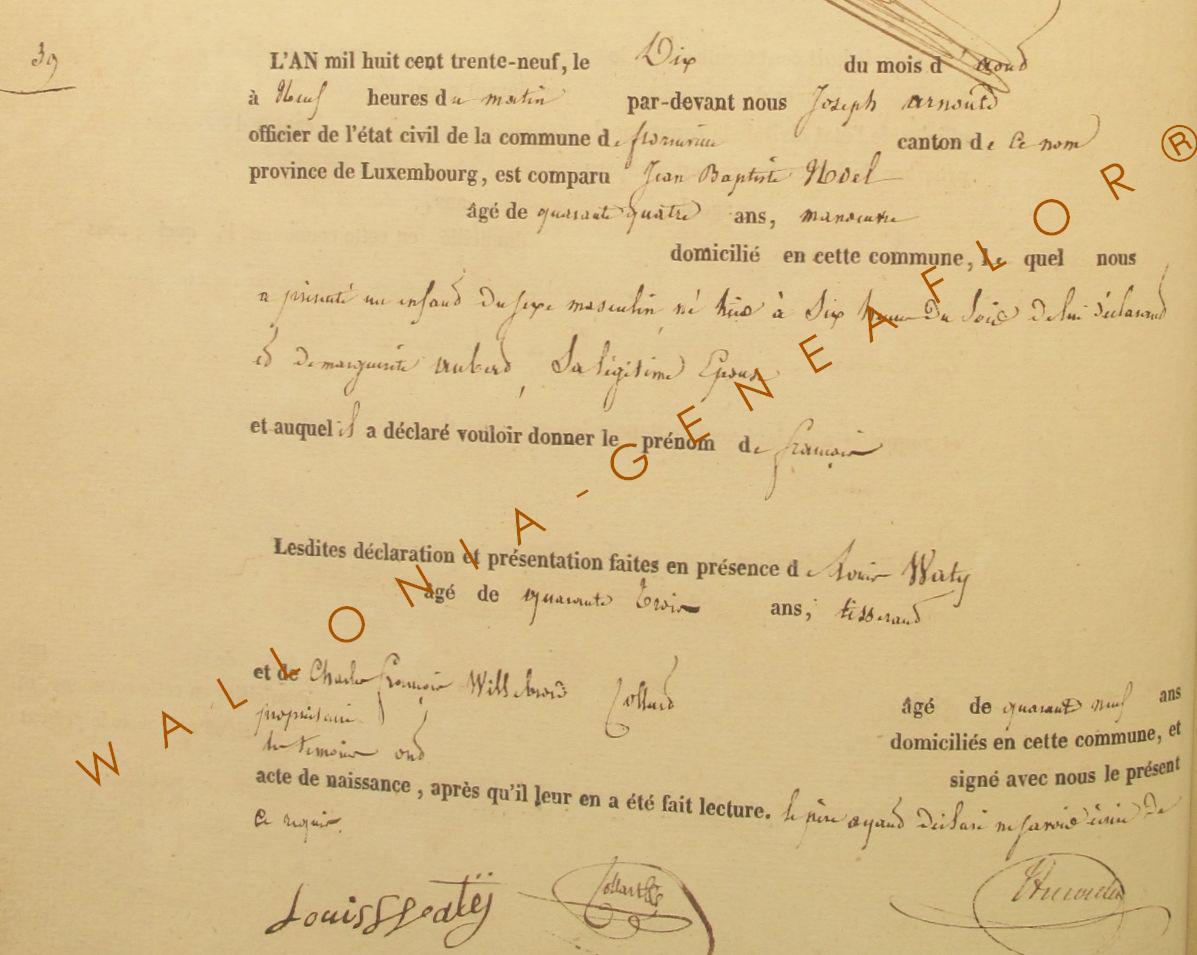 39
L'AN mil huit cent trente-neuf, le Dix du mois d'aout
à Neuf heures du matin par-devant nous Joseph arnould
officier de l'état civil de la commune de florenville canton de ce nom
province de Luxembourg, est comparu Jean Baptiste Noel
âgé de quarante quatre ans, manoeuvre
domicilié en cette commune, le quel nous
a présenté un enfant du sexe masculin, né hier à Six heures Du Soir de lui déclarant
et de marguerite aubert, Sa légitime Epouse
et auquel il a déclaré vouloir donner le prénom de françois
Lesdites déclaration et présentation faites en présence de Louis Waty
âgé de quarante trois ans, tisserand
et de Charles françois Willebrord Collard
âgé de quarante neuf ans
propriétaire
domiciliés en cette commune, et
les temoins ont signé avec nous le présent
acte de naissance, après qu'il leur en a été fait lecture. le père ayant déclaré ne savoir écrire de
ce requis.
Louis Watÿ
WALLONIA-GENEAFLOR®